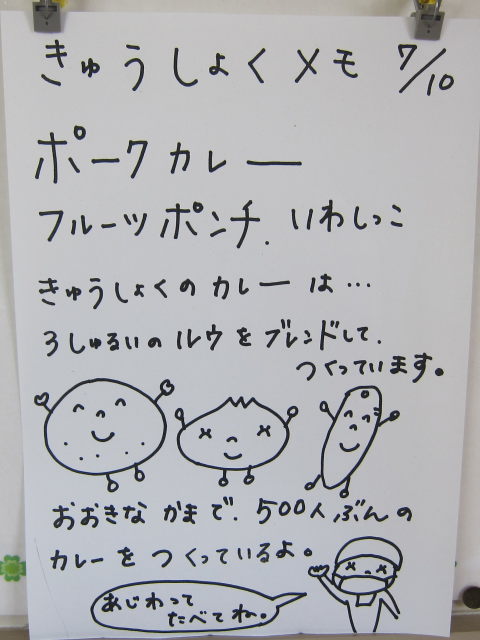 きゅうしょくメモ 7/10
ポークカレー
フルーツポンチ. いわしっこ
きゅうしょくのカレーは…
3しゅるいのルウをブレンドして.
つくっています。
おおきなかまで. 500人ぶんの
カレーをつくっているよ。
あじわって
たべてね。